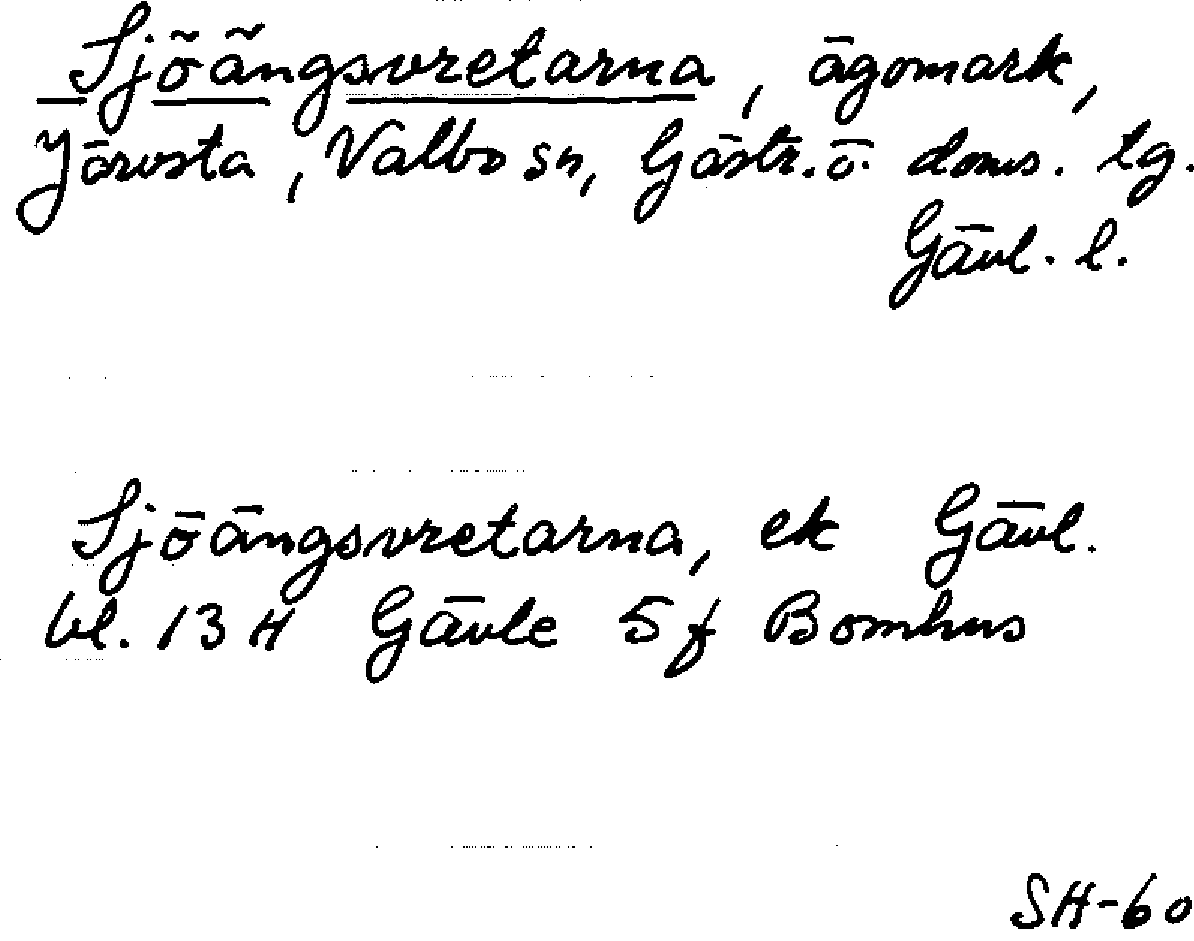 Sjöängsvretarna, ägomark,
Järvsta, Valbo sn, Gästr. ö. doms. tg.
Gävl. l.
Sjöängsvretarna, ek Gävl.
bl. 13 H Gävle 5 f Bomhus
SH-60